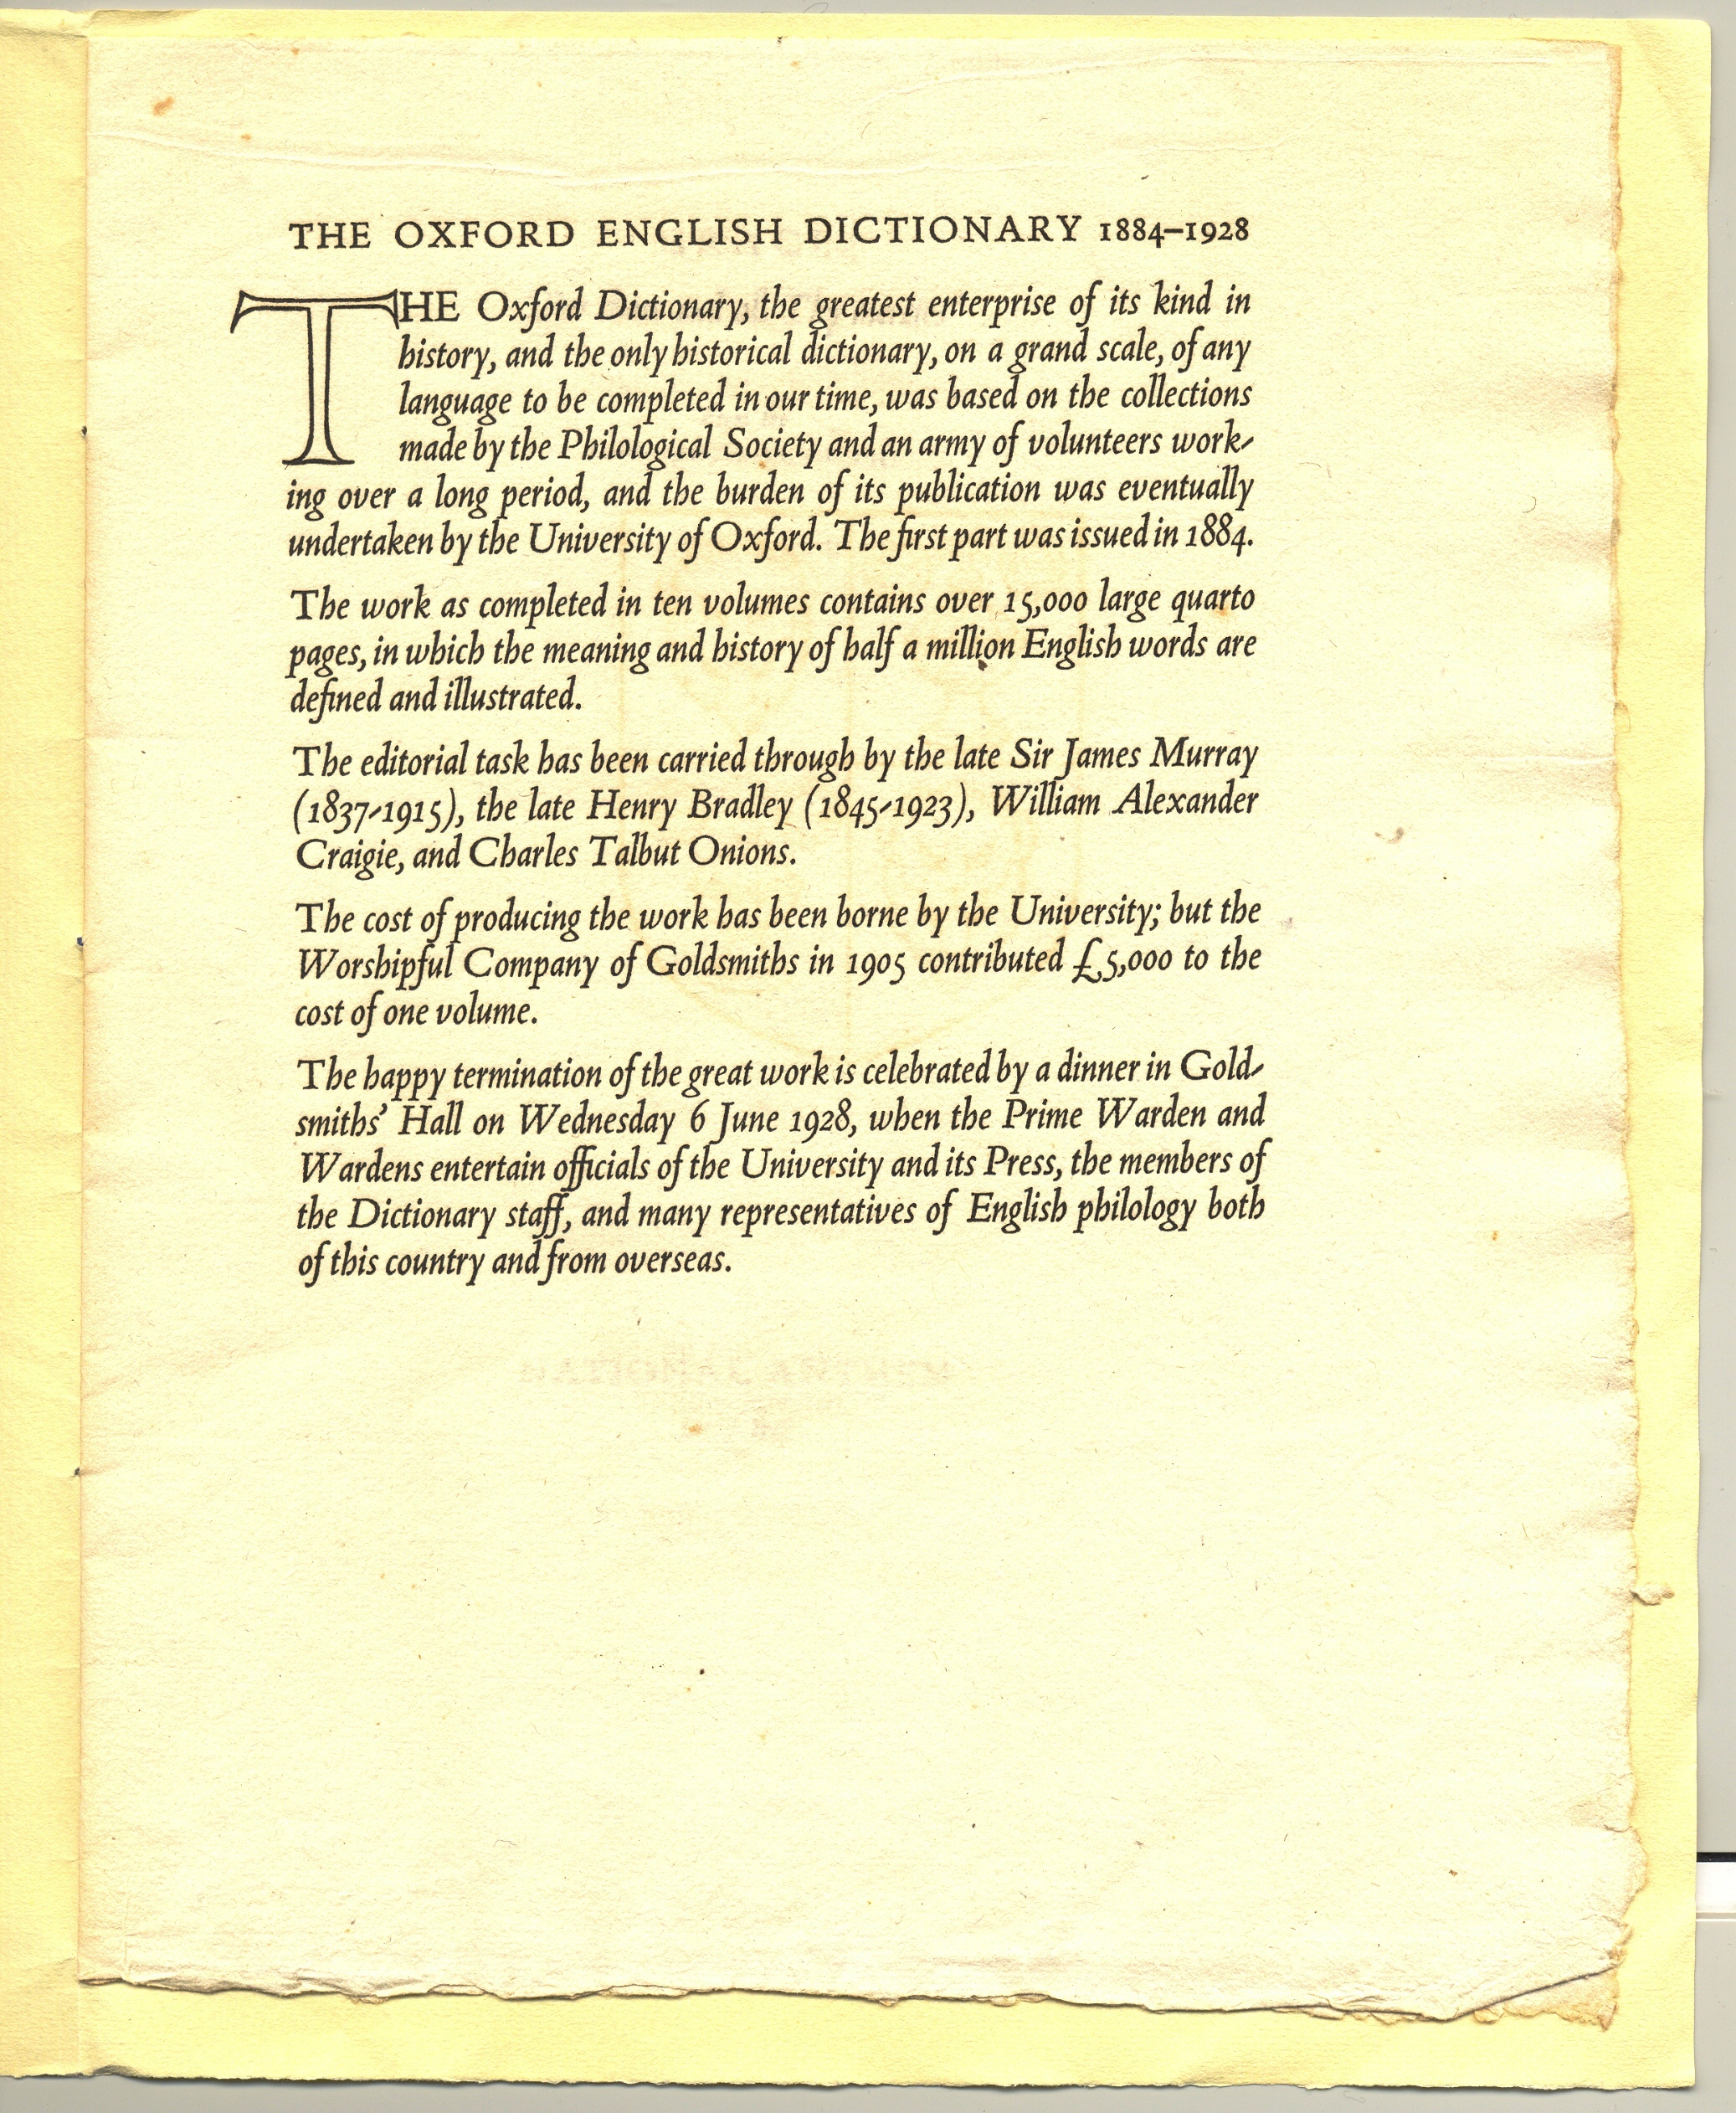 THE OXFORD ENGLISH DICTIONARY 1884–1928
THE Oxford Dictionary, the greatest enterprise of its kind in
history, and the only historical dictionary, on a grand scale, of any
language to be completed in our time, was based on the collections
made by the Philological Society and an army of volunteers work-
ing over a long period, and the burden of its publication was eventually
undertaken by the University of Oxford. The first part was issued in 1884.
The work as completed in ten volumes contains over 15,000 large quarto
pages, in which the meaning and history of half a million English words are
defined and illustrated.
The editorial task has been carried through by the late Sir James Murray
(1837-1915), the late Henry Bradley (1845-1923), William Alexander
Craigie, and Charles Talbut Onions.
The cost of producing the work has been borne by the University; but the
Worshipful Company of Goldsmiths in 1905 contributed £5,000 to the
cost of one volume.
The happy termination of the great work is celebrated by a dinner in Gold-
smiths' Hall on Wednesday 6 June 1928, when the Prime Warden and
Wardens entertain officials of the University and its Press, the members of
the Dictionary staff, and many representatives of English philology both
of this country and from overseas.